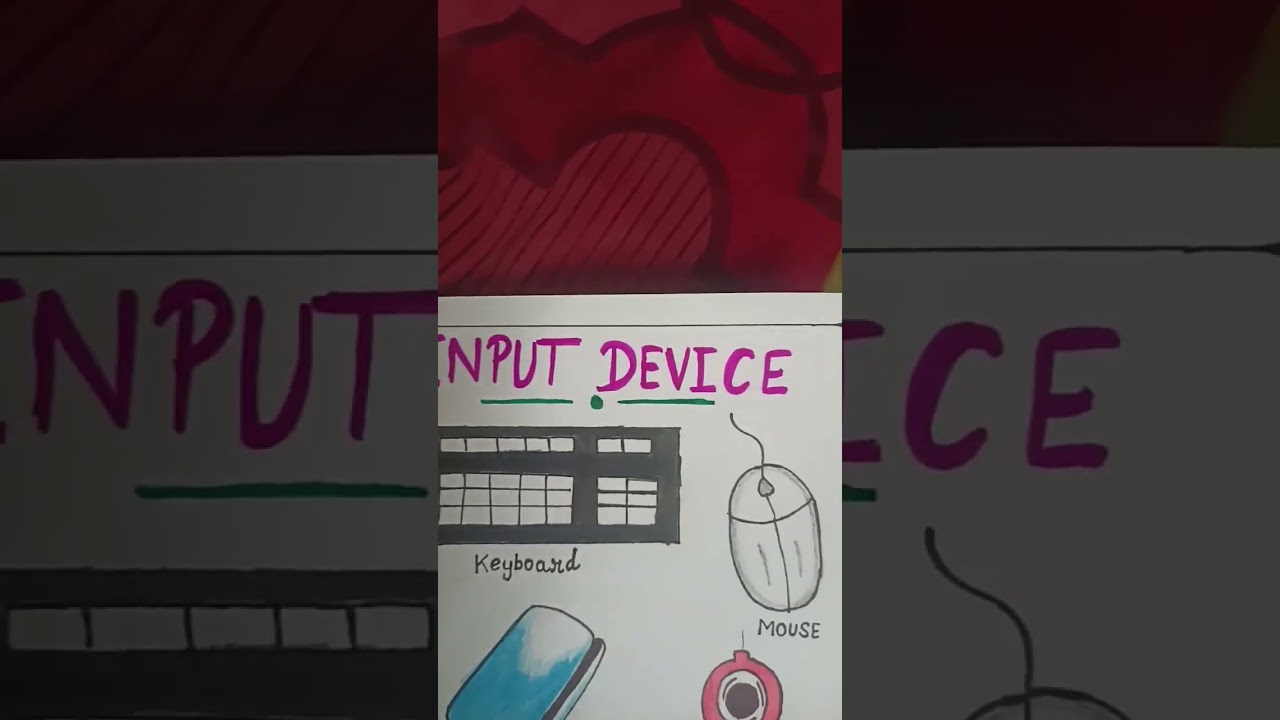 INPUT DEVICE
Keyboard
MOUSE